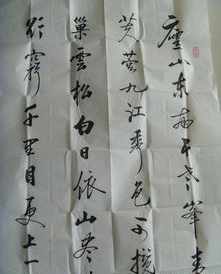 廬山东南五老峯青
芙蓉九江秀色可攬
巢雲松白日依山盡
欲窮千里目更上一